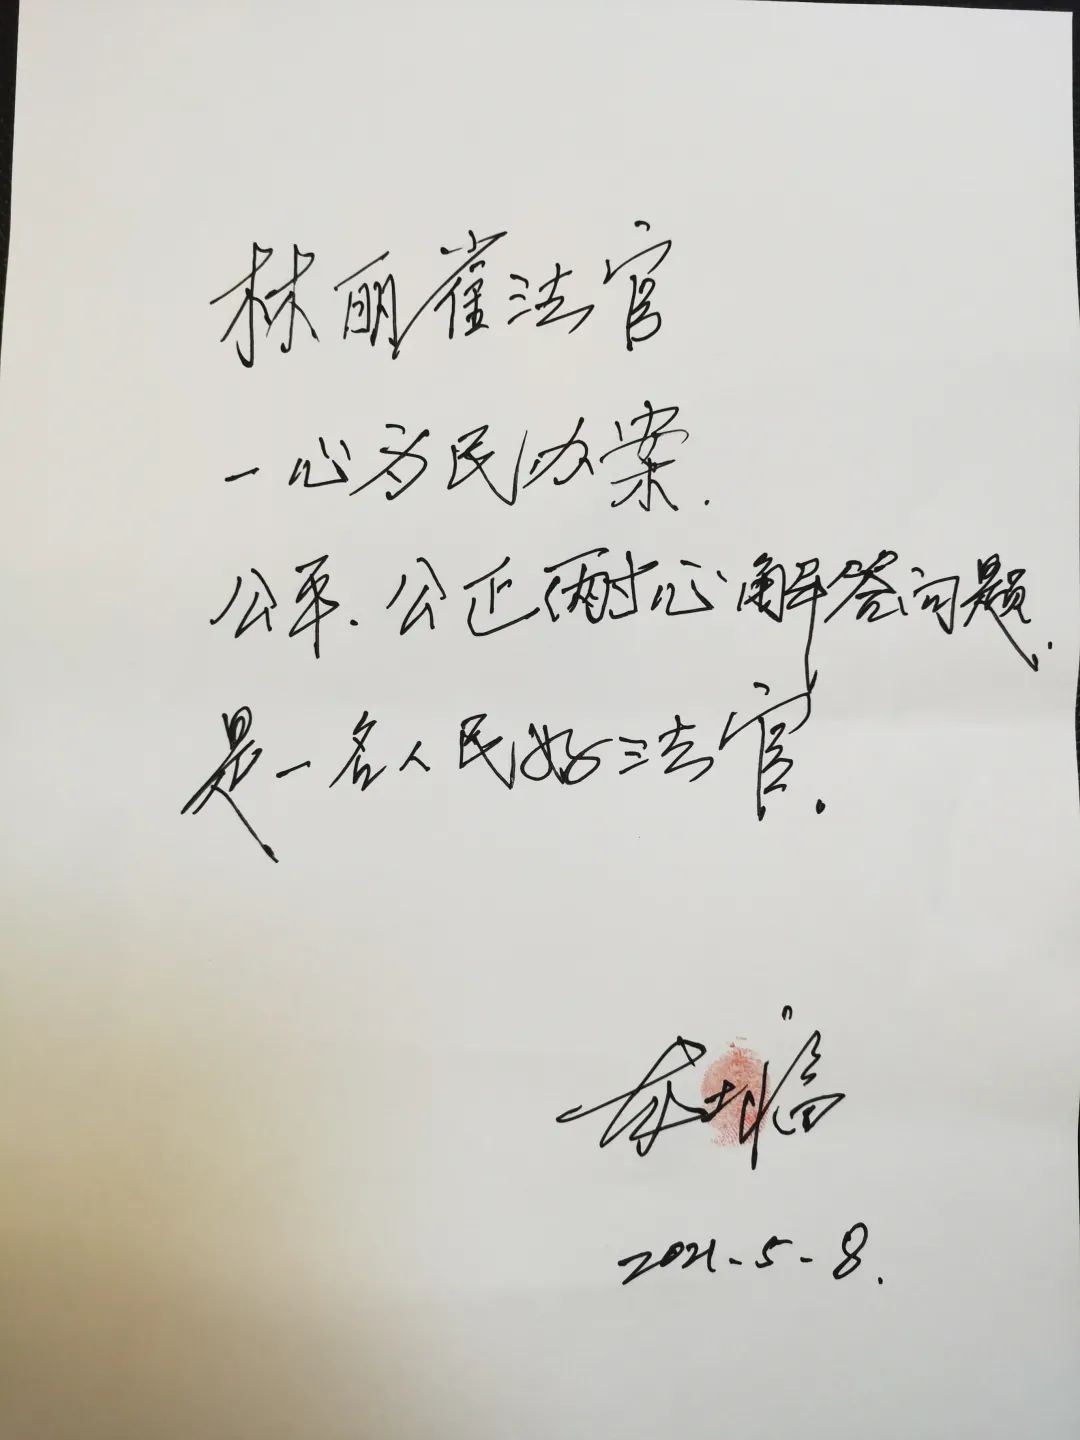 林丽雀法官
一心为民办案.
公平.公正耐心解答问题.
是一名人民好法官.
2021-5-8.